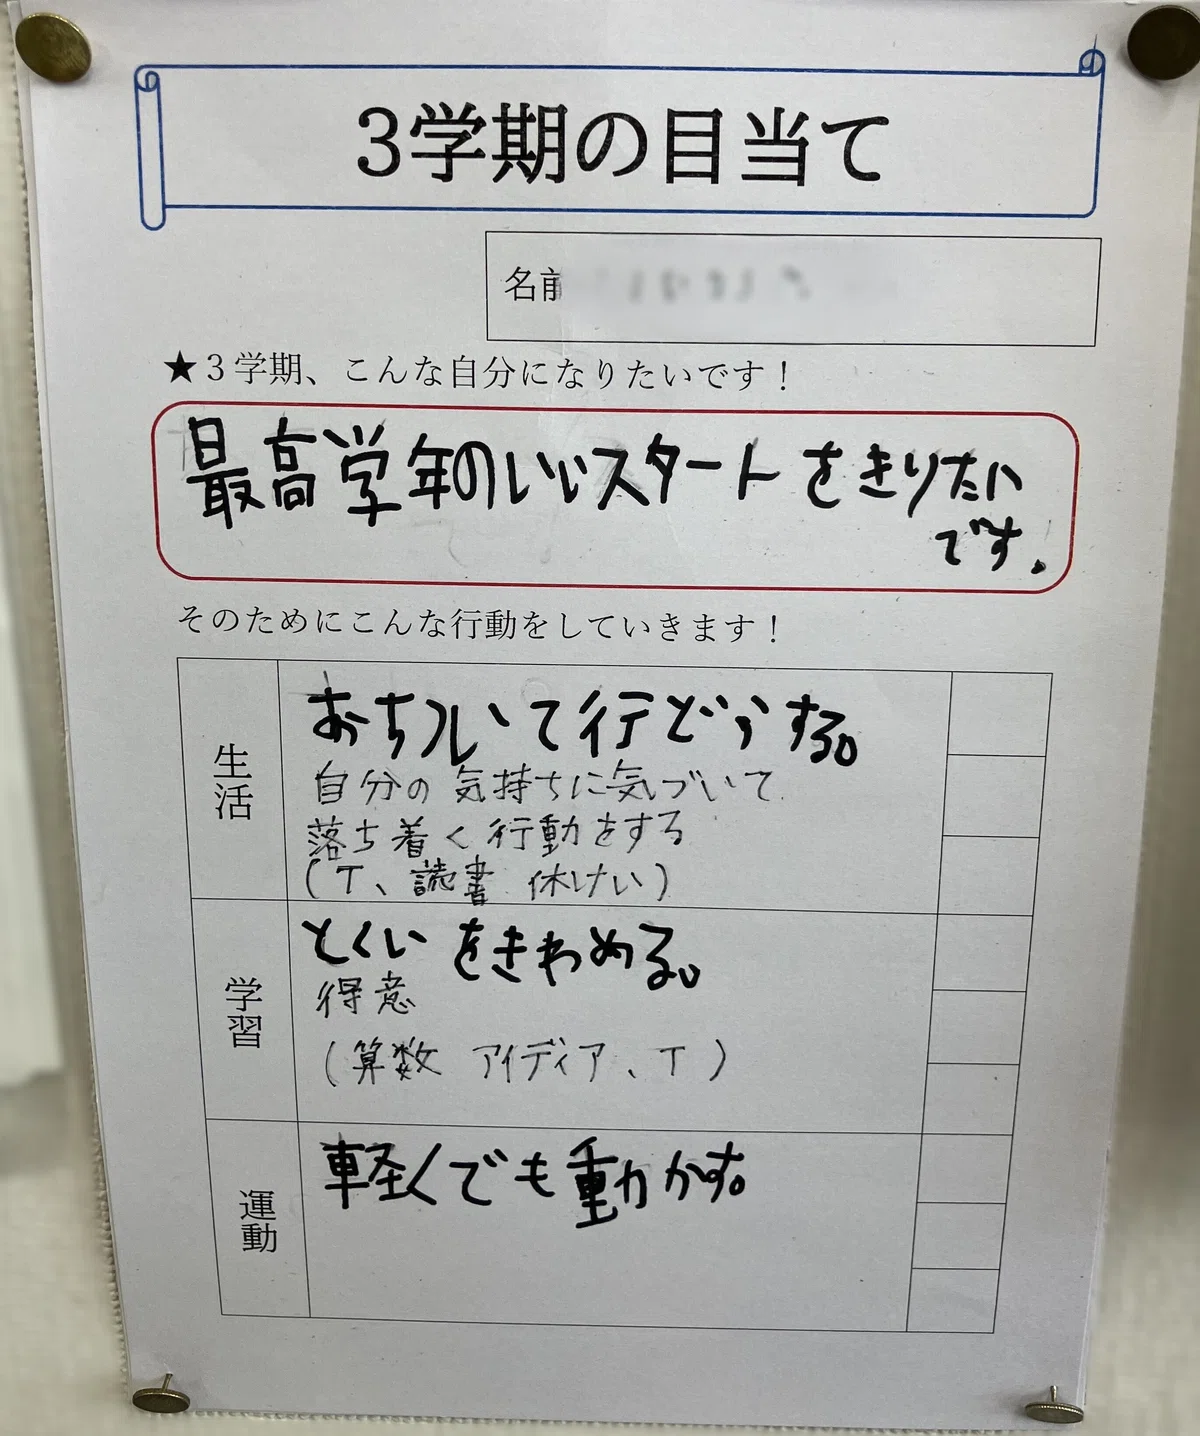 3学期の目当て
名前
★3学期、こんな自分になりたいです！
最高学年のいいスタートをきりたい
です.
そのためにこんな行動をしていきます！
生活
おちついて行どうする。
自分の気持ちに気づいて
落ち着く行動をする
(T、読書 休けい)
学習
とくいをきわめる。
得意
(算数 アイディア、T)
運動
軽くでも動かす。